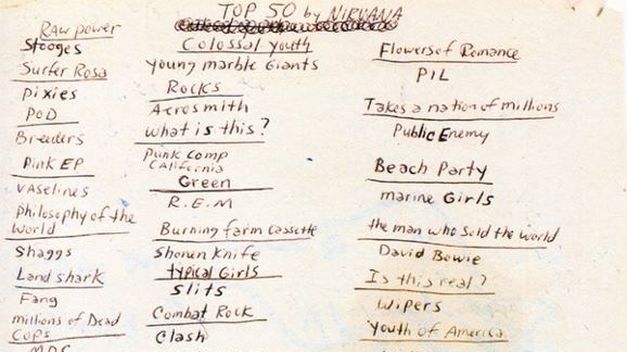 TOP 50 by NIRVANA
Raw power
Stooges
Surfer Rosa
Pixies
POD
Breeders
Pink EP
vaselines
Philosophy of the
world
Shaggs
Land shark
Fang
millions of Dead
Cops
MDC
Colossal youth
young marble Giants
Rocks
Aerosmith
what is this?
Punk Comp
California
Green
R.E.M
Burning farm Cassette
Shonen Knife
typical Girls
Slits
Combat Rock
Clash
Flowers of Romance
PIL
Takes a nation of millions
Public Enemy
Beach Party
marine Girls
the man who sold the world
David Bowie
Is this real?
Wipers
Youth of America